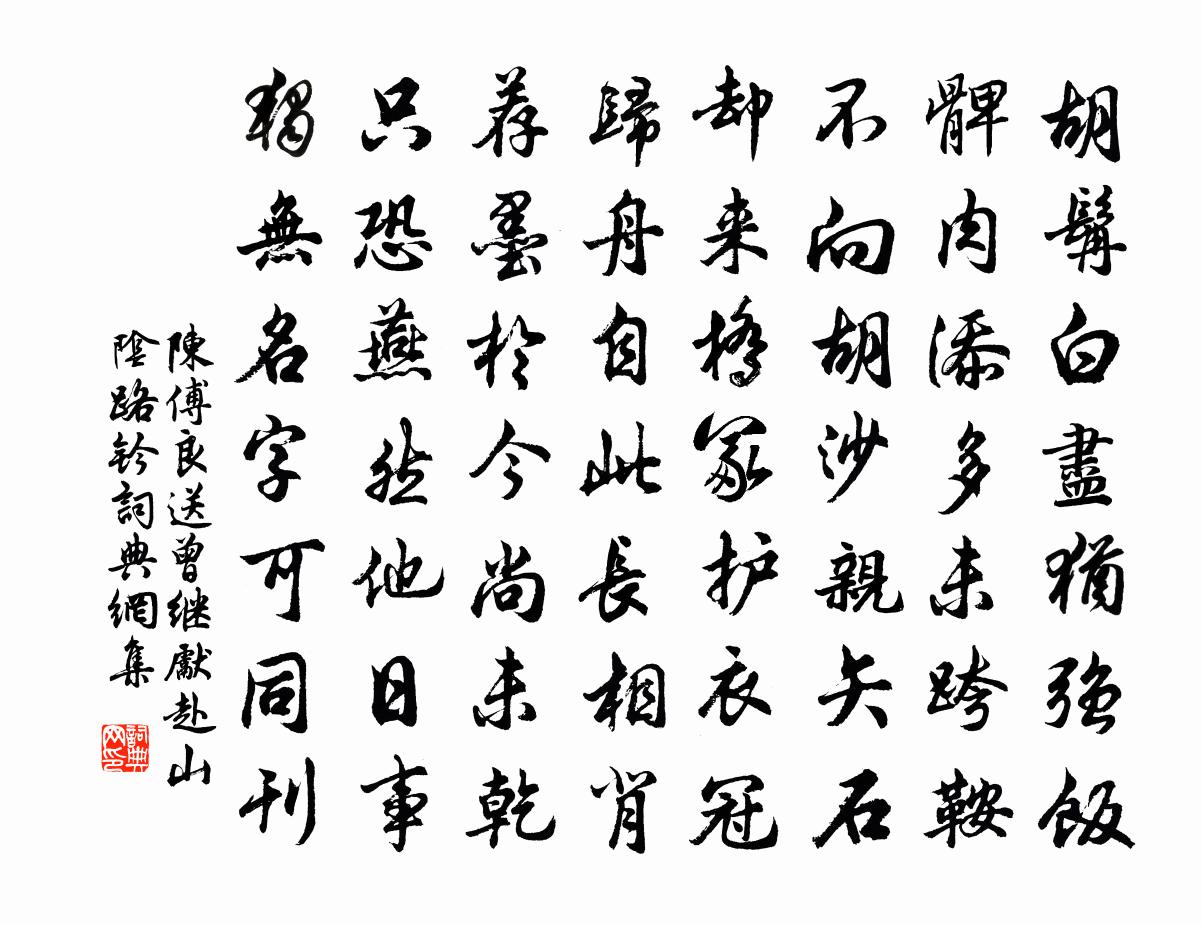 胡髯白盡猶强飯
髀肉添多未跨鞍
不向胡沙親矢石
却来橋冢护衣冠
歸舟自此長相肖
荐墨於今尚未乾
只恐燕然他日事
獨無名字可同刊
陳傅良送曾继獻赴山
陰路钤詞典網集
詞典网印